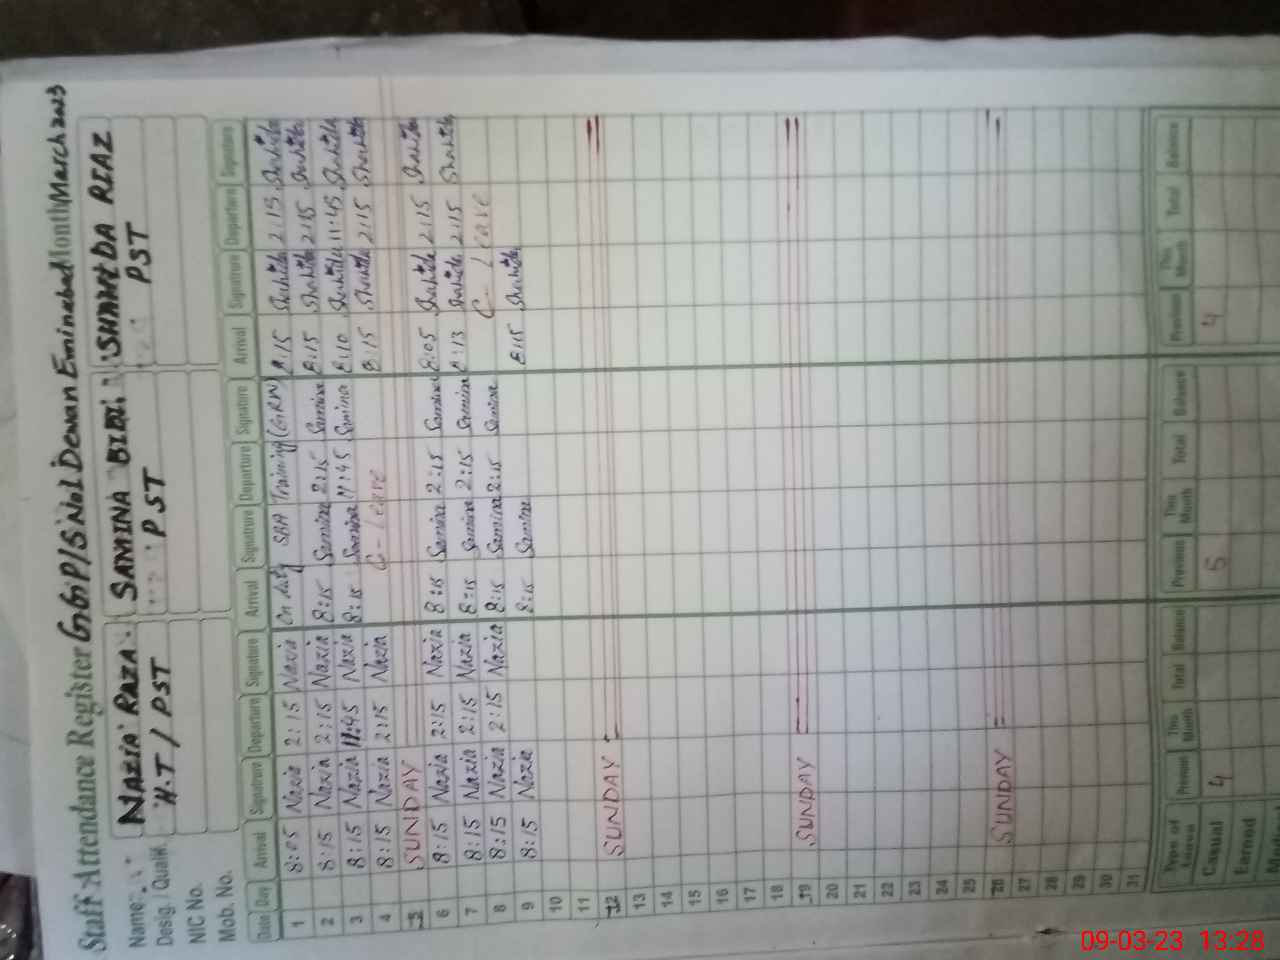 Staff Attendance Register G.G.P/S No1 Dewan Eminabad Month March 2023
Name: NAZIA RAZA SAMINA BIBI SHAHIDA REAZ
Desig. / Qualif. H.T / PST PST PST
NIC No.
Mob. No.
Date Day Arrival Signature Departure Signature Arrival Signature Departure Signature Arrival Signature Departure Signature
1 8:05 Nazia 2:15 Nazia On duty SBA Training (GRW) 8:15 Shahida 2:15 Shahida
2 8:15 Nazia 2:15 Nazia 8:15 Samina 2:15 Samina 8:15 Shahida 2:15 Shahida
3 8:15 Nazia 11:45 Nazia 8:15 Samina 11:45 Samina 8:10 Shahida 11:45 Shahida
4 8:15 Nazia 2:15 Nazia C-leave 8:15 Shahida 2:15 Shahida
5 SUNDAY
6 8:15 Nazia 2:15 Nazia 8:15 Samina 2:15 Samina 8:05 Shahida 2:15 Shahida
7 8:15 Nazia 2:15 Nazia 8:15 Samina 2:15 Samina 8:13 Shahida 2:15 Shahida
8 8:15 Nazia 2:15 Nazia 8:15 Samina 2:15 Samina C-leave
9 8:15 Nazia 8:15 Samina 8:15 Shahida
10
11
12 SUNDAY
13
14
15
16
17
18
19 SUNDAY
20
21
22
23
24
25
26 SUNDAY
27
28
29
30
31
Type of Leave Previous This Month Total Balance Previous This Month Total Balance Previous This Month Total Balance
Casual 4 5 4
Earned
09-03-23 13:28